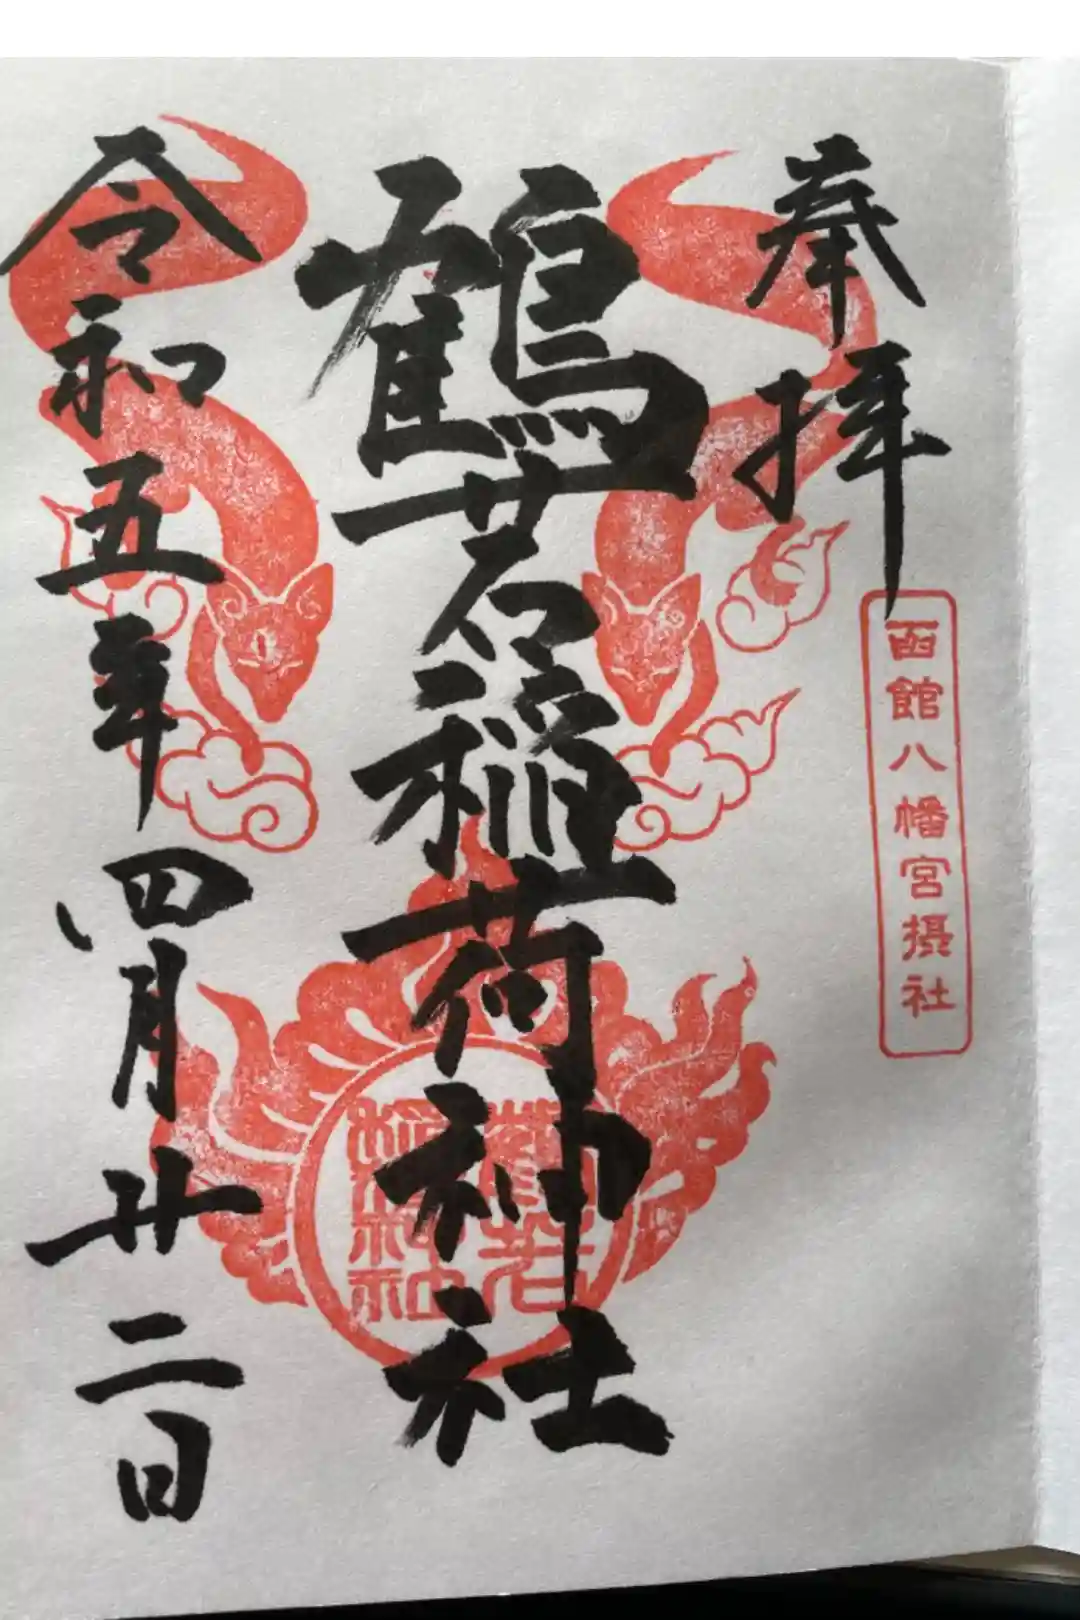 奉拝
函館八幡宮摂社
鶴若稲荷神社
鶴若
稲荷神社
令和五年四月廿二日